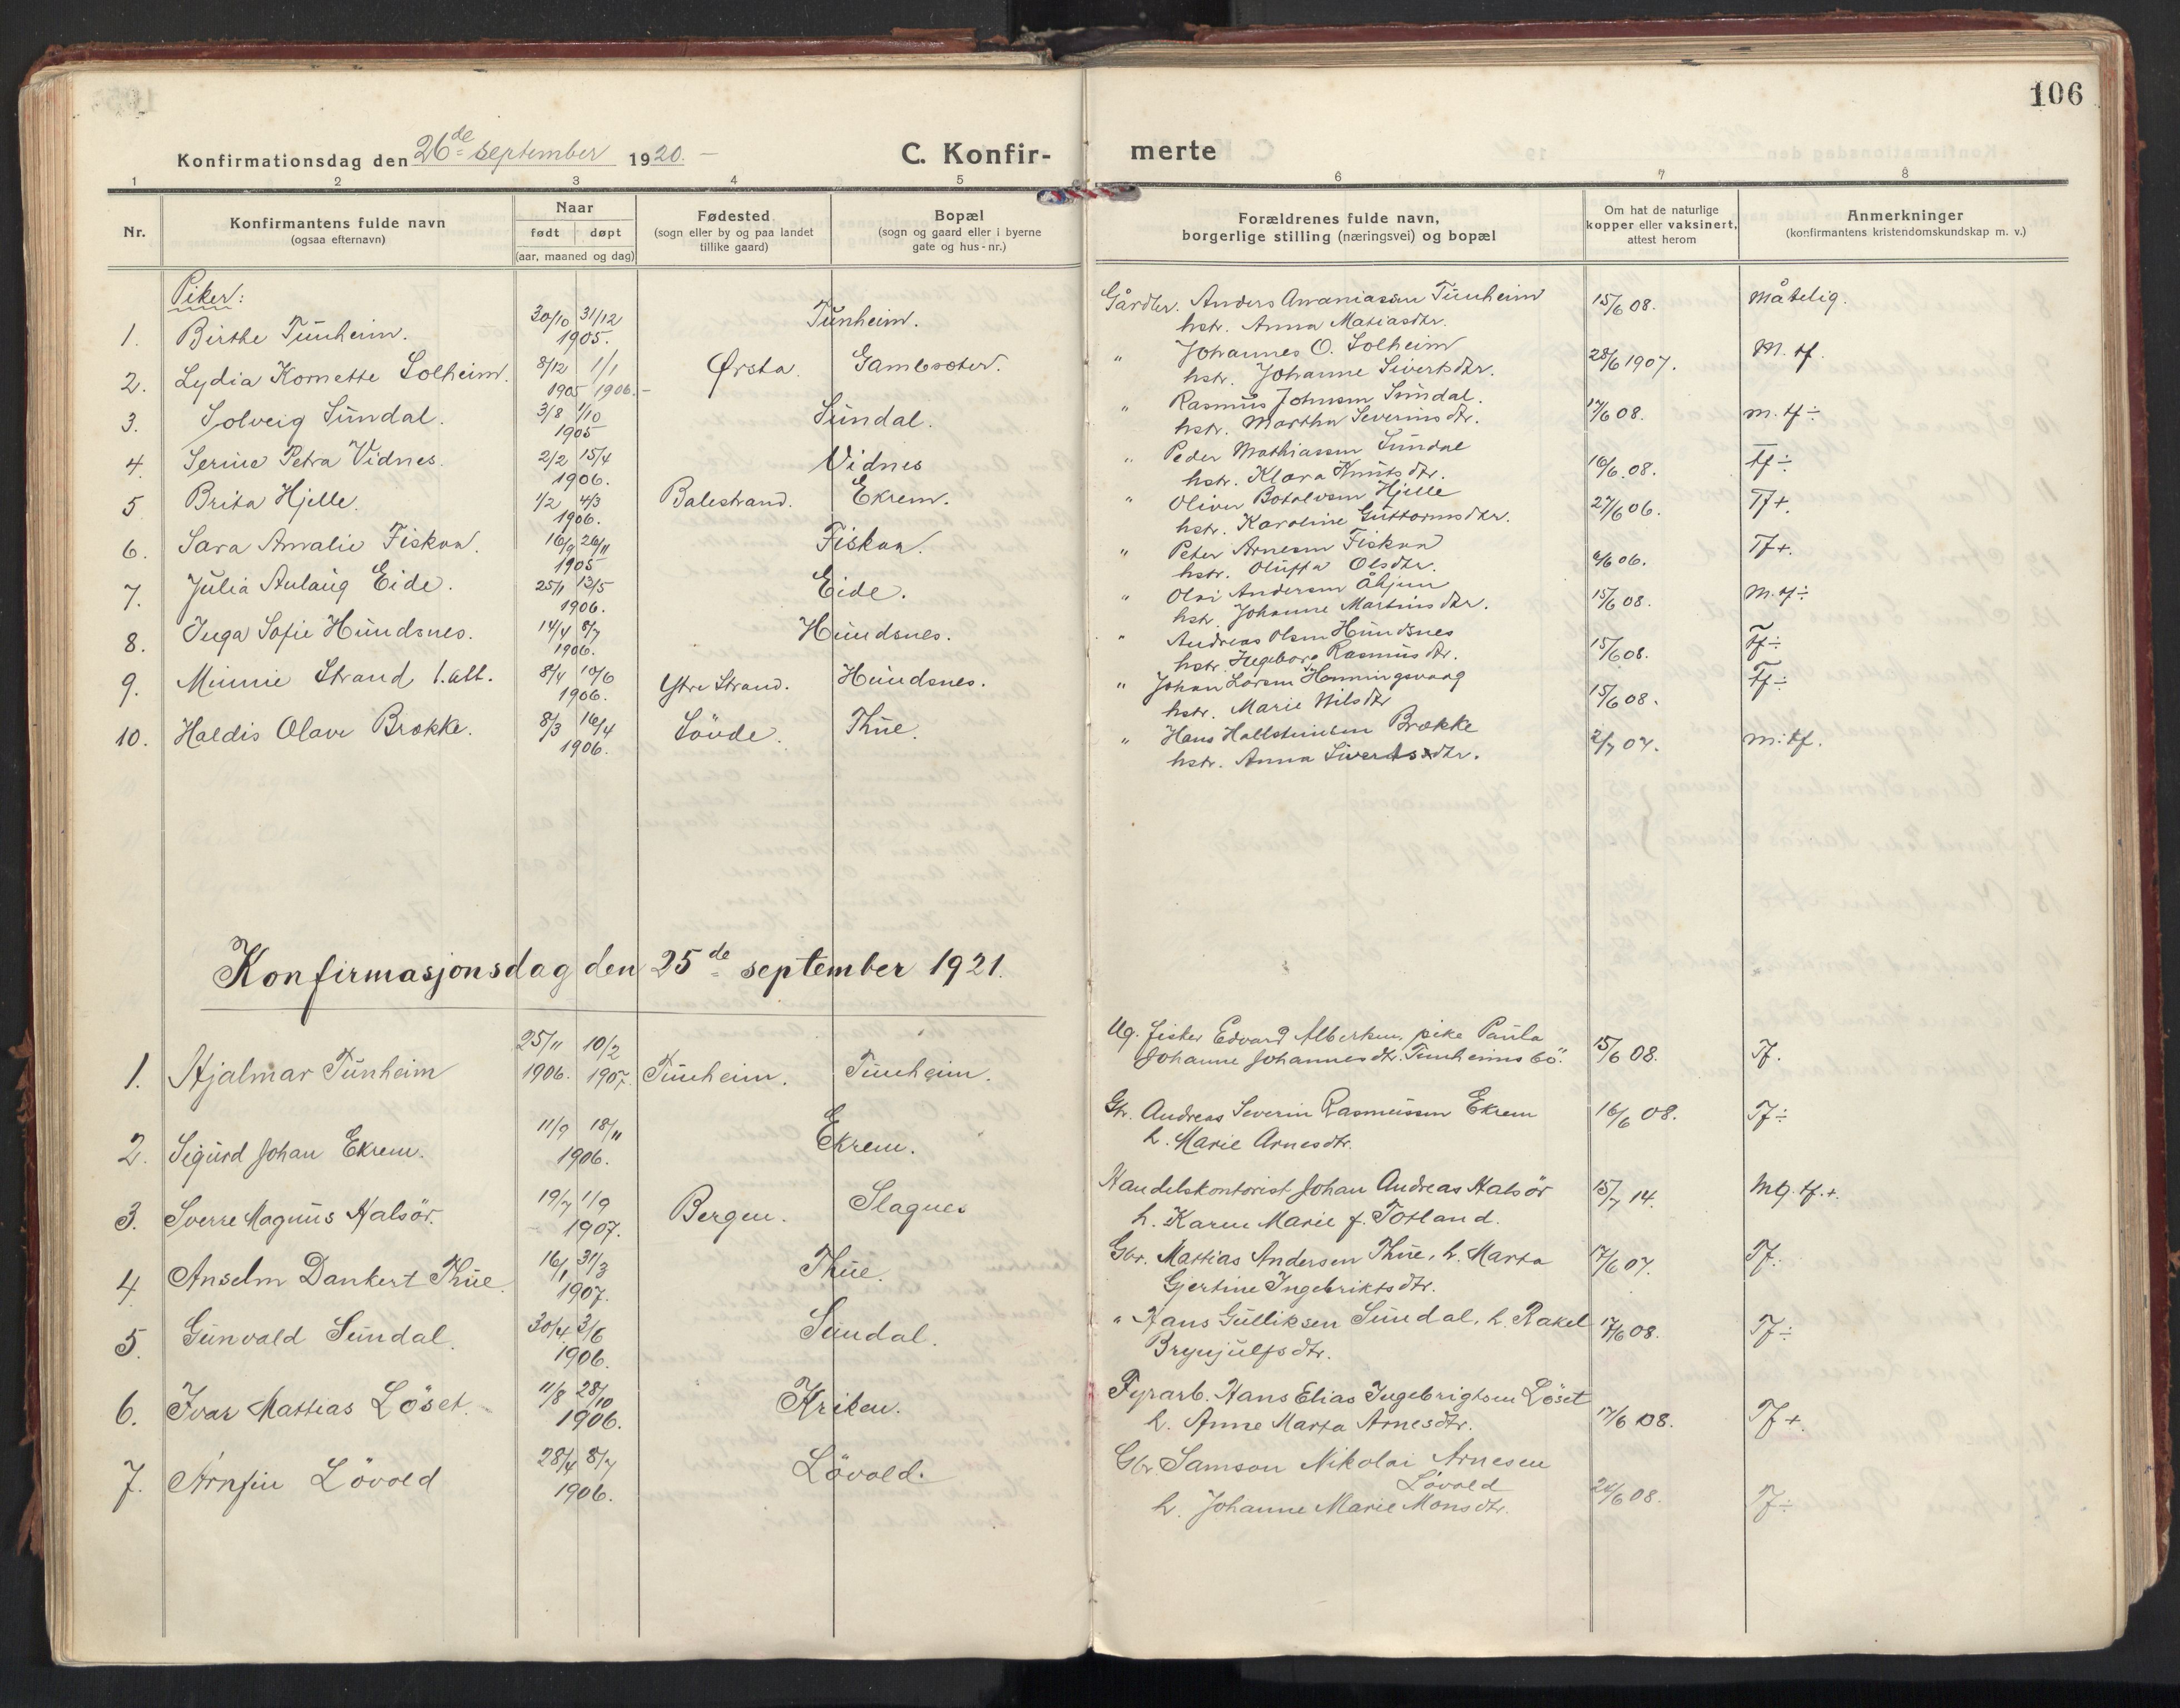 106
Konfirmationsdag den 26de september 1920. –
C. Konfirmerte
1 2 3 4 5 6 7 8
Nr.
Konfirmantens fulde navn
(ogsaa efternavn)
Naar
født døpt
(aar, maaned og dag)
Fødested
(sogn eller by og paa landet
tillike gaard)
Bopæl
(sogn og gaard eller i byerne
gate og hus-nr.)
Forældrenes fulde navn,
borgerlige stilling (næringsvei) og bopæl
Om hat de naturlige
kopper eller vaksinert,
attest herom
Anmerkninger
(konfirmantens kristendomskundskap m. v.)
Piker:
1. Birthe Tunheim. 30/10 31/12 1905. Tunheim. Gårdbr. Anders Ananiassen Tunheim 15/6 08. Måtelig.
hstr. Anna Matiasdtr.
2. Lydia Kornette Solheim. 8/12 1905 1/1 1906. – Ørsta. Gambsæter. " Johannes O. Solheim 28/6 1907. M. tf.
hstr. Johanne Sivertsdtr.
3. Solveig Sundal. 3/8 1/10 1905 Sundal. " Rasmus Johnsen Sundal. 17/6 08. m. tf ÷
hstr. Martha Severinsdtr.
4. Serine Petra Vidnes. 2/2 15/4 1906. Vidnes " Peder Mathiassen Sundal 16/6 08. Tf ÷
hstr. Klara Knutsdtr.
5 Brita Hjelle. 1/2 4/3 1906. Balestrand. Ekrem. " Oliver Botolvsen Hjelle 27/6 06. Tf +.
hstr. Karoline Guttormsdtr.
6. Sara Amalie Fiskaa. 16/9 26/11 1905 Fiskaa. " Peter Arnesen Fiskaa /6 06. Tf +.
hstr. Oluffa Olsdtr.
7. Julia Aulaug Eide. 25/1 13/5 1906. Eide. " Olai Andersen Åhjem 15/6 08. M. tf ÷
hstr. Johanne Martinsdtr.
8. Inga Sofie Hundsnes. 14/4 8/7 1906. Hundsnes. " Andreas Olsen Hundsnes 15/6 08. Tf ÷
hstr. Ingeborg Rasmusdtr.
9. Minnie Strand 1. alt. 8/4 10/6 1906. Ytre Strand. Hundsnes. " Johan Larsen Henningsvaag 15/6 08. Tf ÷
hstr. Marie Nilsdtr
10. Haldis Olave Brække. 8/3 16/4 1906. Sövde. Thue. " Hans Hallsteinsen Brække 2/7 07. m: tf.
hstr. Anna Sivertsdtr.
Konfirmasjonsdag den 25de september 1921.
1. Hjalmar Tunheim 25/11 1906. 10/2 1907. Tunheim. Tunheim. Ug. fisker Edvard Albertsen, pike Paula 15/6 08. Tf.
Johanne Johannesdtr. Tunheimsbö.
2. Sigurd Johan Ekrem. 11/9 18/11 1906. Ekrem. Gbr. Andreas Severin Rasmussen Ekrem 16/6 08. Tf ÷
h. Marie Arnesdtr.
3. Sverre Magnus Halsör. 19/7 1/9 1907. Bergen. Slagnes Handelskontorist Johan Andreas Halsör 15/7 14. Mg. tf. +.
h. Karen Marie f. Totland.
4. Anselm Dankert Thue. 16/1 31/3 1907. Thue. Gbr. Mattias Andersen Thue, h. Marta 17/6 07. Tf.
Gjertine Ingebriktsdtr.
5. Gunvald Sundal. 30/4 3/6 1906. Sundal. " Hans Gulliksen Sundal, h. Rakel 17/6 08. Tf ÷
Brynjulfsdtr.
6. Ivar Mattias Löset. 11/8 28/10 1906. Kriken. Fyrarb. Hans Elias Ingebrigtsen Löset
h. Anne Marta Arnesdtr. 17/6 08. Tf +.
7. Arnfin Lövold 28/4 8/7 1906. Lövold. Gbr. Samson Nikolai Arnesen
Lövold 20/6 08. Tf ÷
h. Johanne Marie Monsdtr.